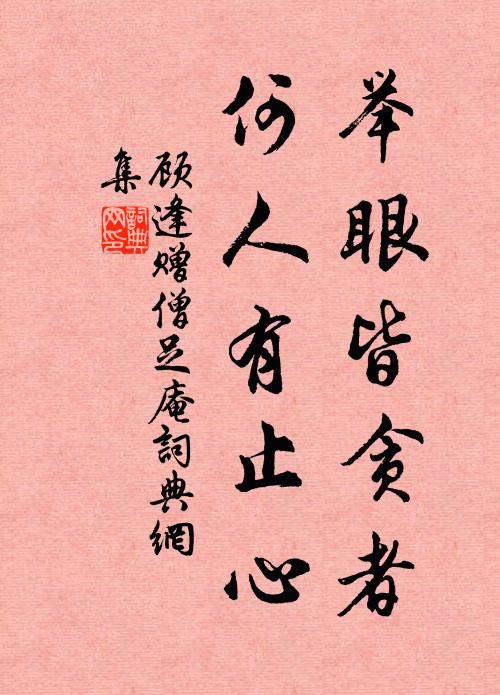 举眼皆贪者
何人有止心
顾逢赠僧足庵詞典網
集
詞典网印